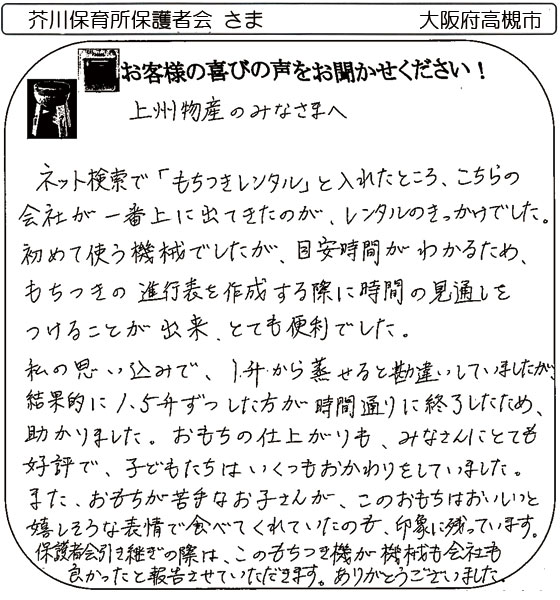 芥川保育所保護者会 さま　大阪府高槻市
お客様の喜びの声をお聞かせください！
上州物産のみなさまへ
ネット検索で「もちつきレンタル」と入れたところ、こちらの
会社が一番上に出てきたのが、レンタルのきっかけでした。
初めて使う機械でしたが、目安時間がわかるため、
もちつきの進行表を作成する際に時間の見通しを
つけることが出来、とても便利でした。
私の思い込みで、1升から蒸せると勘違いしていましたが、
結果的に1.5升ずつした方が時間通りに終了したため、
助かりました。おもちの仕上がりも、みなさんにとても
好評で、子どもたちはいくつもおかわりをしていました。
また、おもちが苦手なお子さんが、このおもちはおいしいと
嬉しそうな表情で食べてくれていたのも、印象に残っています。
保護者会引き継ぎの際は、このもちつき機が機械も会社も
良かったと報告させていただきます。ありがとうございました。